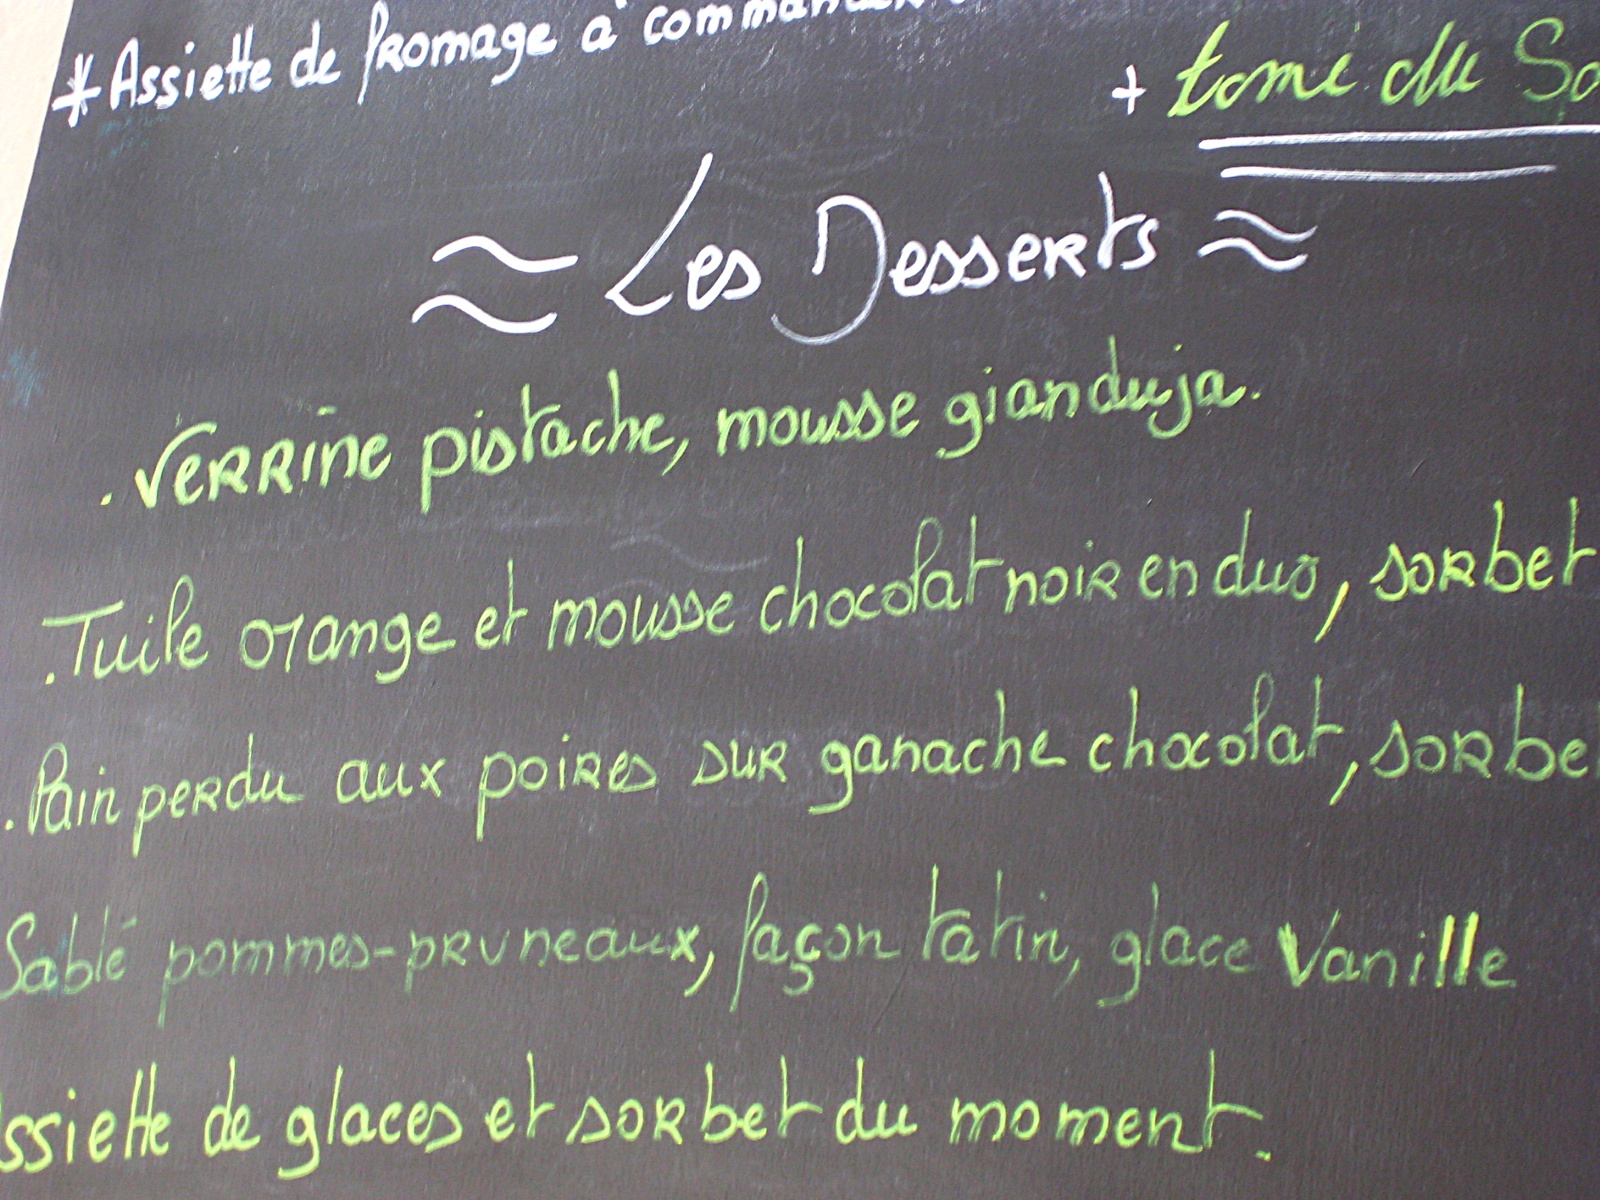 * Assiette de fromage à
+ tome du
≈ Les Desserts ≈
. Verrine pistache, mousse gianduja.
. Tuile orange et mousse chocolat noir en duo, sorbet
. Pain perdu aux poires sur ganache chocolat, sorbe
Sablé pommes-pruneaux, façon tatin, glace Vanille
ssiette de glaces et sorbet du moment.